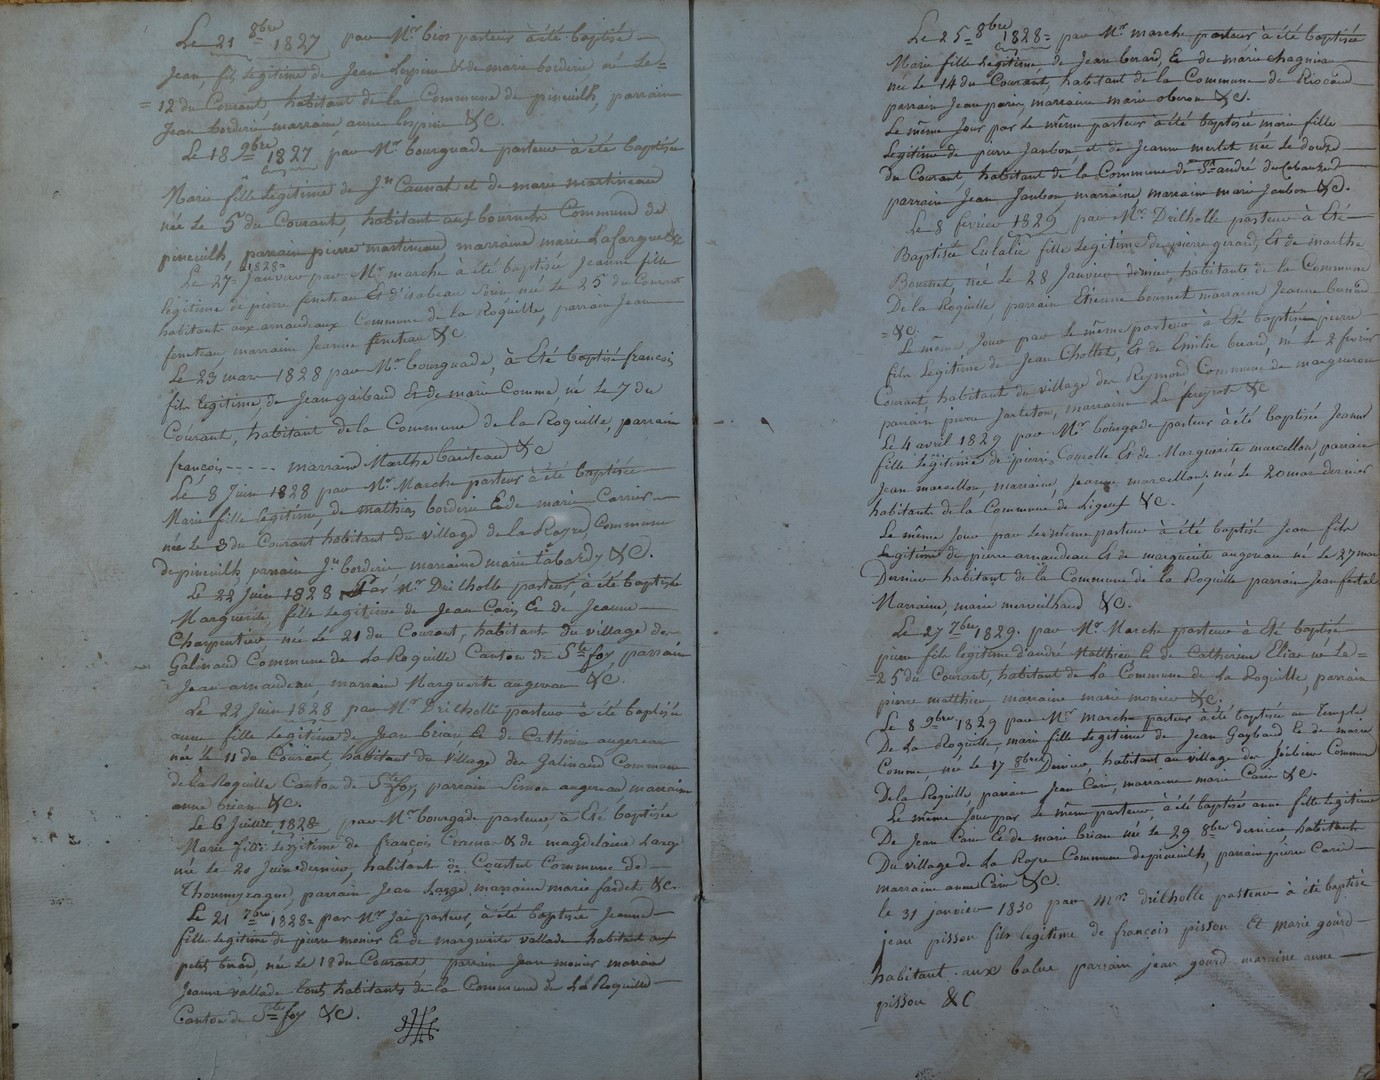 Le 21 8bre 1827 par Mr bios pasteur à été baptisé
Jean, fils legitime de Jean Lespine & de marie borderie, né Le
12 du Courant habitant de la Commune de pineuilh, parrain
Jean borderie marraine anne Lespine &C.
Le 18 9bre 1827 par Mr bourguade pasteur à été baptisée
Marie fille Legitime de Jn Caunat et de marie martineau
née Le 5 du Courant, habitant aux bournets Commune de
pineuilh, parrain pierre martineau marraine marie Lafargue &c
Le 27 Janvier 1828 par Mr marche à été baptisée Jeanne fille
légitime de pierre feneteau Et d'isabeau née Le 25 du Courant
habitant aux arnaudeaux Commune de la Roquille, parrain Jean
feneteau marraine Jeanne feneteau &C
Le 23 mars 1828 par Mr bourguade, à Eté baptisé françois
fils legitime, de Jean gaibaud Et de marie Comme né Le 7 du
Courant, habitant de la Commune de la Roquille, parrain
françois ----- marraine Marthe bariteau &C
Le 8 Juin 1828 par Mr Marche pasteur à été baptisée
Marie fille legitime, de mathieu borderie Et de marie Carrier
née Le 3 du Courant habitant du village de la Roze, Commune
de pineuilh, parrain Jn borderie marraine marie tabardy &C.
Le 22 Juin 1828 Par Mr Drilholle pasteur, à été baptisée
Marguerite, fille Legitime de Jean Carin Et de Jeanne
Charpentier née Le 21 du Courant, habitant du village des
Galinaud Commune de La Roquille Canton de Ste foy, parrain
Jean arnaudeau, marraine Marguerite augereau &C.
Le 22 Juin 1828 par Mr Drilholle pasteur à été baptisée
anne fille Legitime de Jean brian Et de Catherine augereau
née Le 11 du Courant, habitant du village des Galinaud Commune
de la Roquille Canton de Ste foy, parrain Simon augereau marraine
anne brian &C.
Le 6 Juillet 1828 par Mr bourgade pasteur, à Eté baptisée
Marie fille legitime de françois & de magdelaine Large
née Le 20 Juin dernier, habitant de Commune de
parrain Jean Large, marraine marie fardet &c.
Le 21 7bre 1828 par Mr Jai pasteur, à été baptisée Jeanne
fille legitime de pierre monier Et de marguerite vallade habitant aux
petit née Le 18 du Courant parrain Jean monier marraine
Jeanne vallade tous habitants de la Commune de La Roquille
Canton de Ste foy &C.
Le 25 8bre 1828 par Mr marche pasteur à été baptisée
Marie fille legitime de Jean berard, Et de marie chagniau
née Le 14 du Courant, habitant de la Commune de Riocaud
parrain Jean paris, marraine marie oberon &C.
Le même Jour par Le même pasteur à été baptisée marie fille
legitime de pierre Jaubon et de Jeanne merlet née Le douze
du Courant, habitant de la Commune de St andré du Cabauzed
parrain Jean Jaubon marraine, marraine marie Jaubon &C.
Le 8 fevrier 1829 par Mr Drilholle pasteur à Eté
Baptisée Eulalie fille Legitime de pierre girard, Et de marthe
Bournet, née Le 28 Janvier dernier, habitants de la Commune
De la Roquille parrain Etienne bournet marraine Jeanne
&C.
Le même Jour par Le même pasteur à Eté baptisé pierre
fils Légitime de Jean Chollet, Et de Emilie né Le 2 fevrier
Courant, habitant du village des Reymond Commune de margueron
parrain pierre Jarleton, marraine La fereyrote &C
Le 4 avril 1829 par Mr bourgade pasteur à été baptisée Jeanne
fille Légitime de pierre Courolle Et de Marguerite marcellou, parrain
Jean marcellou, marraine, Jeanne marcellou, née Le 20 mars dernier
habitants de la Commune de Ligeux &C.
Le même Jour par Le même pasteur à été baptisé Jean fils
Legitime de pierre arnaudeau Et de marguerite augereau né Le 27 mars
Dernier habitant de la Commune de la Roquille parrain Jean
Marraine, marie merveilhaud &C.
Le 27 7bre 1829. par Mr Marche pasteur à Eté baptisé
pierre fils legitime d'andré Matthieu Et de Catherine Elias né Le
25 du Courant, habitant de La Commune de La Roquille, parrain
pierre matthieu, marraine marie monier &C.
Le 8 9bre 1829 par Mr marche pasteur à été baptisée au Temple
De La Roquille, marie fille Legitime de Jean Gaybaud Et de marie
Comme, née Le 17 8bre Dernier habitant au village des Commune
De la Roquille parrain Jean Carin, marraine marie Carin &C.
Le même Jour par Le même pasteur, à été baptisée anne fille Legitime
De Jean Carin Et de marie brian née Le 29 8bre dernier habitants
Du village de La Roze Commune de pineuilh, parrain pierre Carin
marraine anne Carin &C.
le 31 janvier 1830 par mr drilholle pasteur à été baptisé
jean pisson fils legitime de françois pisson et marie gourd
habitant aux balue parrain jean gourd maraine anne
pisson &C